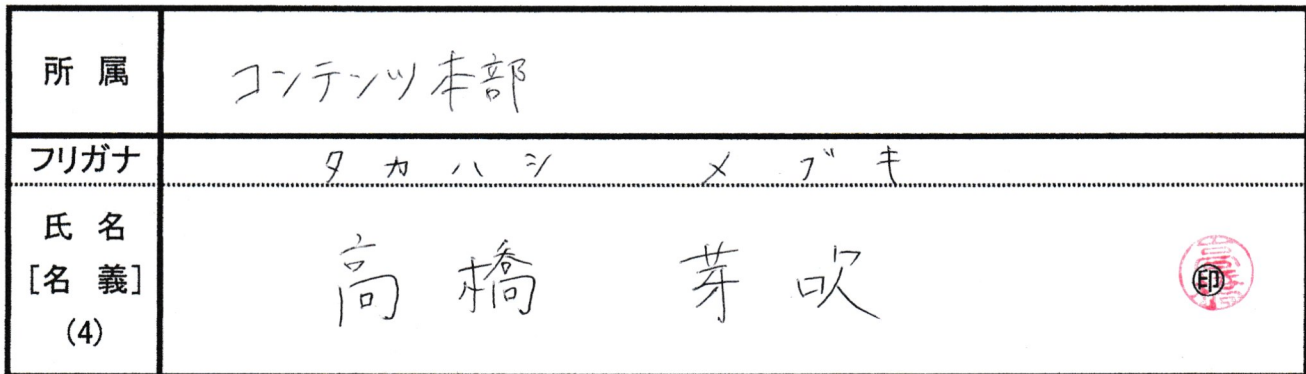 所属 コンテンツ本部
フリガナ タカハシ メブキ
氏名
[名義]
(4)
高橋 芽吹 ㊞